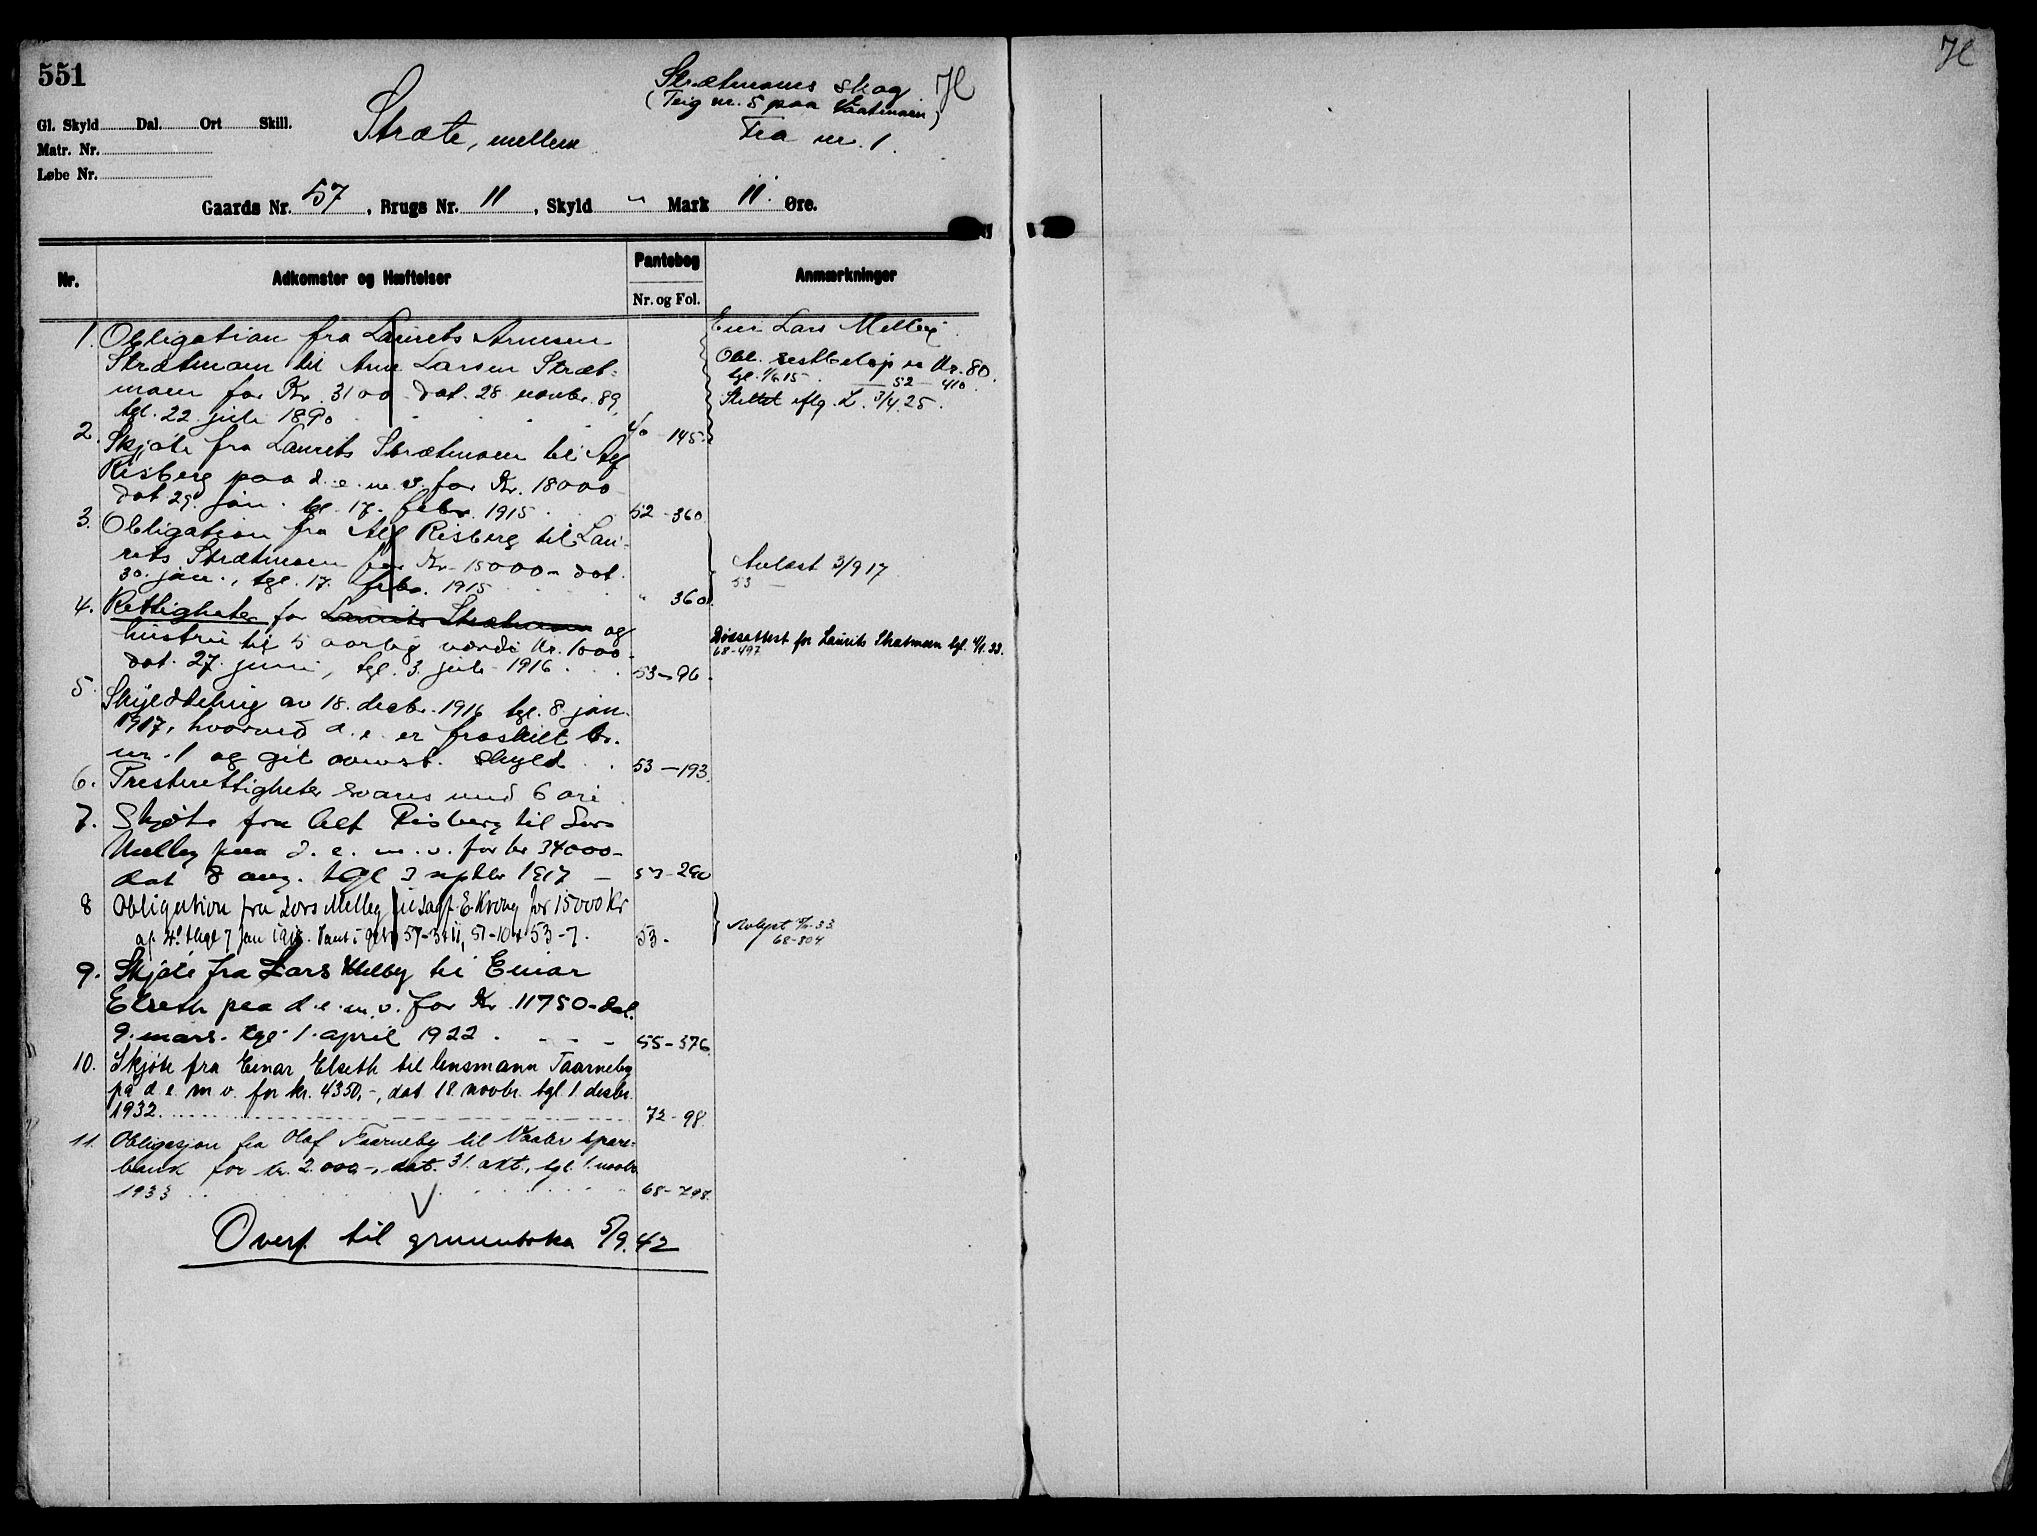 551
Strætmoens skog H
(Teig nr. 5 paa Vaatmoen)
Stræte, mellem
Fra nr. 1.
Gl. Skyld Dal. Ort Skill.
Matr. Nr.
Løbe Nr.
Gaards Nr. 57, Brugs Nr. 11, Skyld " Mark 11 Øre.
Nr. Adkomster og Hæftelser Pantebog Anmærkninger
Nr. og Fol.
1. Obligation fra Laurits Arnesen
Strætmoen til Arne Larsen Stræt-
moen for Kr. 3100 dat. 28 novbr. 89,
tgl. 22 juli 1890 40 145
Lars Melby.
Obl. restbeløp er Kr. 80.
tgl. 1/6 15. 52 - 410
Slettet iflg. L. 3/4 25.
2. Skjøte fra Laurits Strætmoen til Alf
Risberg paa d. e. m. v. for Kr. 18000
dat 29. jan. tgl. 17. febr. 1915 52 - 360
3. Obligation fra Alf Risberg til Lau-
rits Strætmoen for Kr. 15000 - dat.
30. jan., tgl. 17. febr. 1915 " 360
Avlæst 3/9 17
53 —
4. Rettigheter for Laurits Strætmoen og
hustru til 5 aarlig værdi Kr. 1000
dat. 27. juni, tgl. 3. juli 1916 53 - 96
Dødsattest for Laurits Strætmoen tgl. 4/1. 33.
68-497
5. Skylddeling av 18. decbr. 1916 tgl. 8 jan.
1917, hvorved d. e. er fraskilt br.
nr. 1 og git ovenst. skyld 53 - 193.
6. Presterettigheter svares med 6 øre
7. Skjøte fra Alf Risberg til Lars
Melby paa d. e. m. v. for kr 34000 -
dat 8 aug. tgl 3 septbr 1917 — 53 - 290
8 Obligation fra Lars Melby til Sagf. E. Kroby for 15000 Kr
af 4d thgl 7 jan 1918. Pant i gbr 57-3 & 11, 51-10 & 53-7. 53 -
Avlyst 33
68-804
9. Skjøte fra Lars Melby til Einar
Elseth paa d. e. m. v. for Kr. 11750 - dat.
9. mars. tgl 1. april 1922. 55 - 376
10. Skjøte fra Einar Elseth til lensmann Taarneby
på d. e. m v. for kr. 4350,-, dat 18 novbr. tgl 1. desbr.
1932. 72 - 98
11. Obligasjon fra Olaf Taarneby til Vaaler spare-
bank for kr. 2.000,-, dat. 31. okt., tgl. 1. novbr.
1933 68 - 798.
Overf. til grunnboka 5/9. 42
H